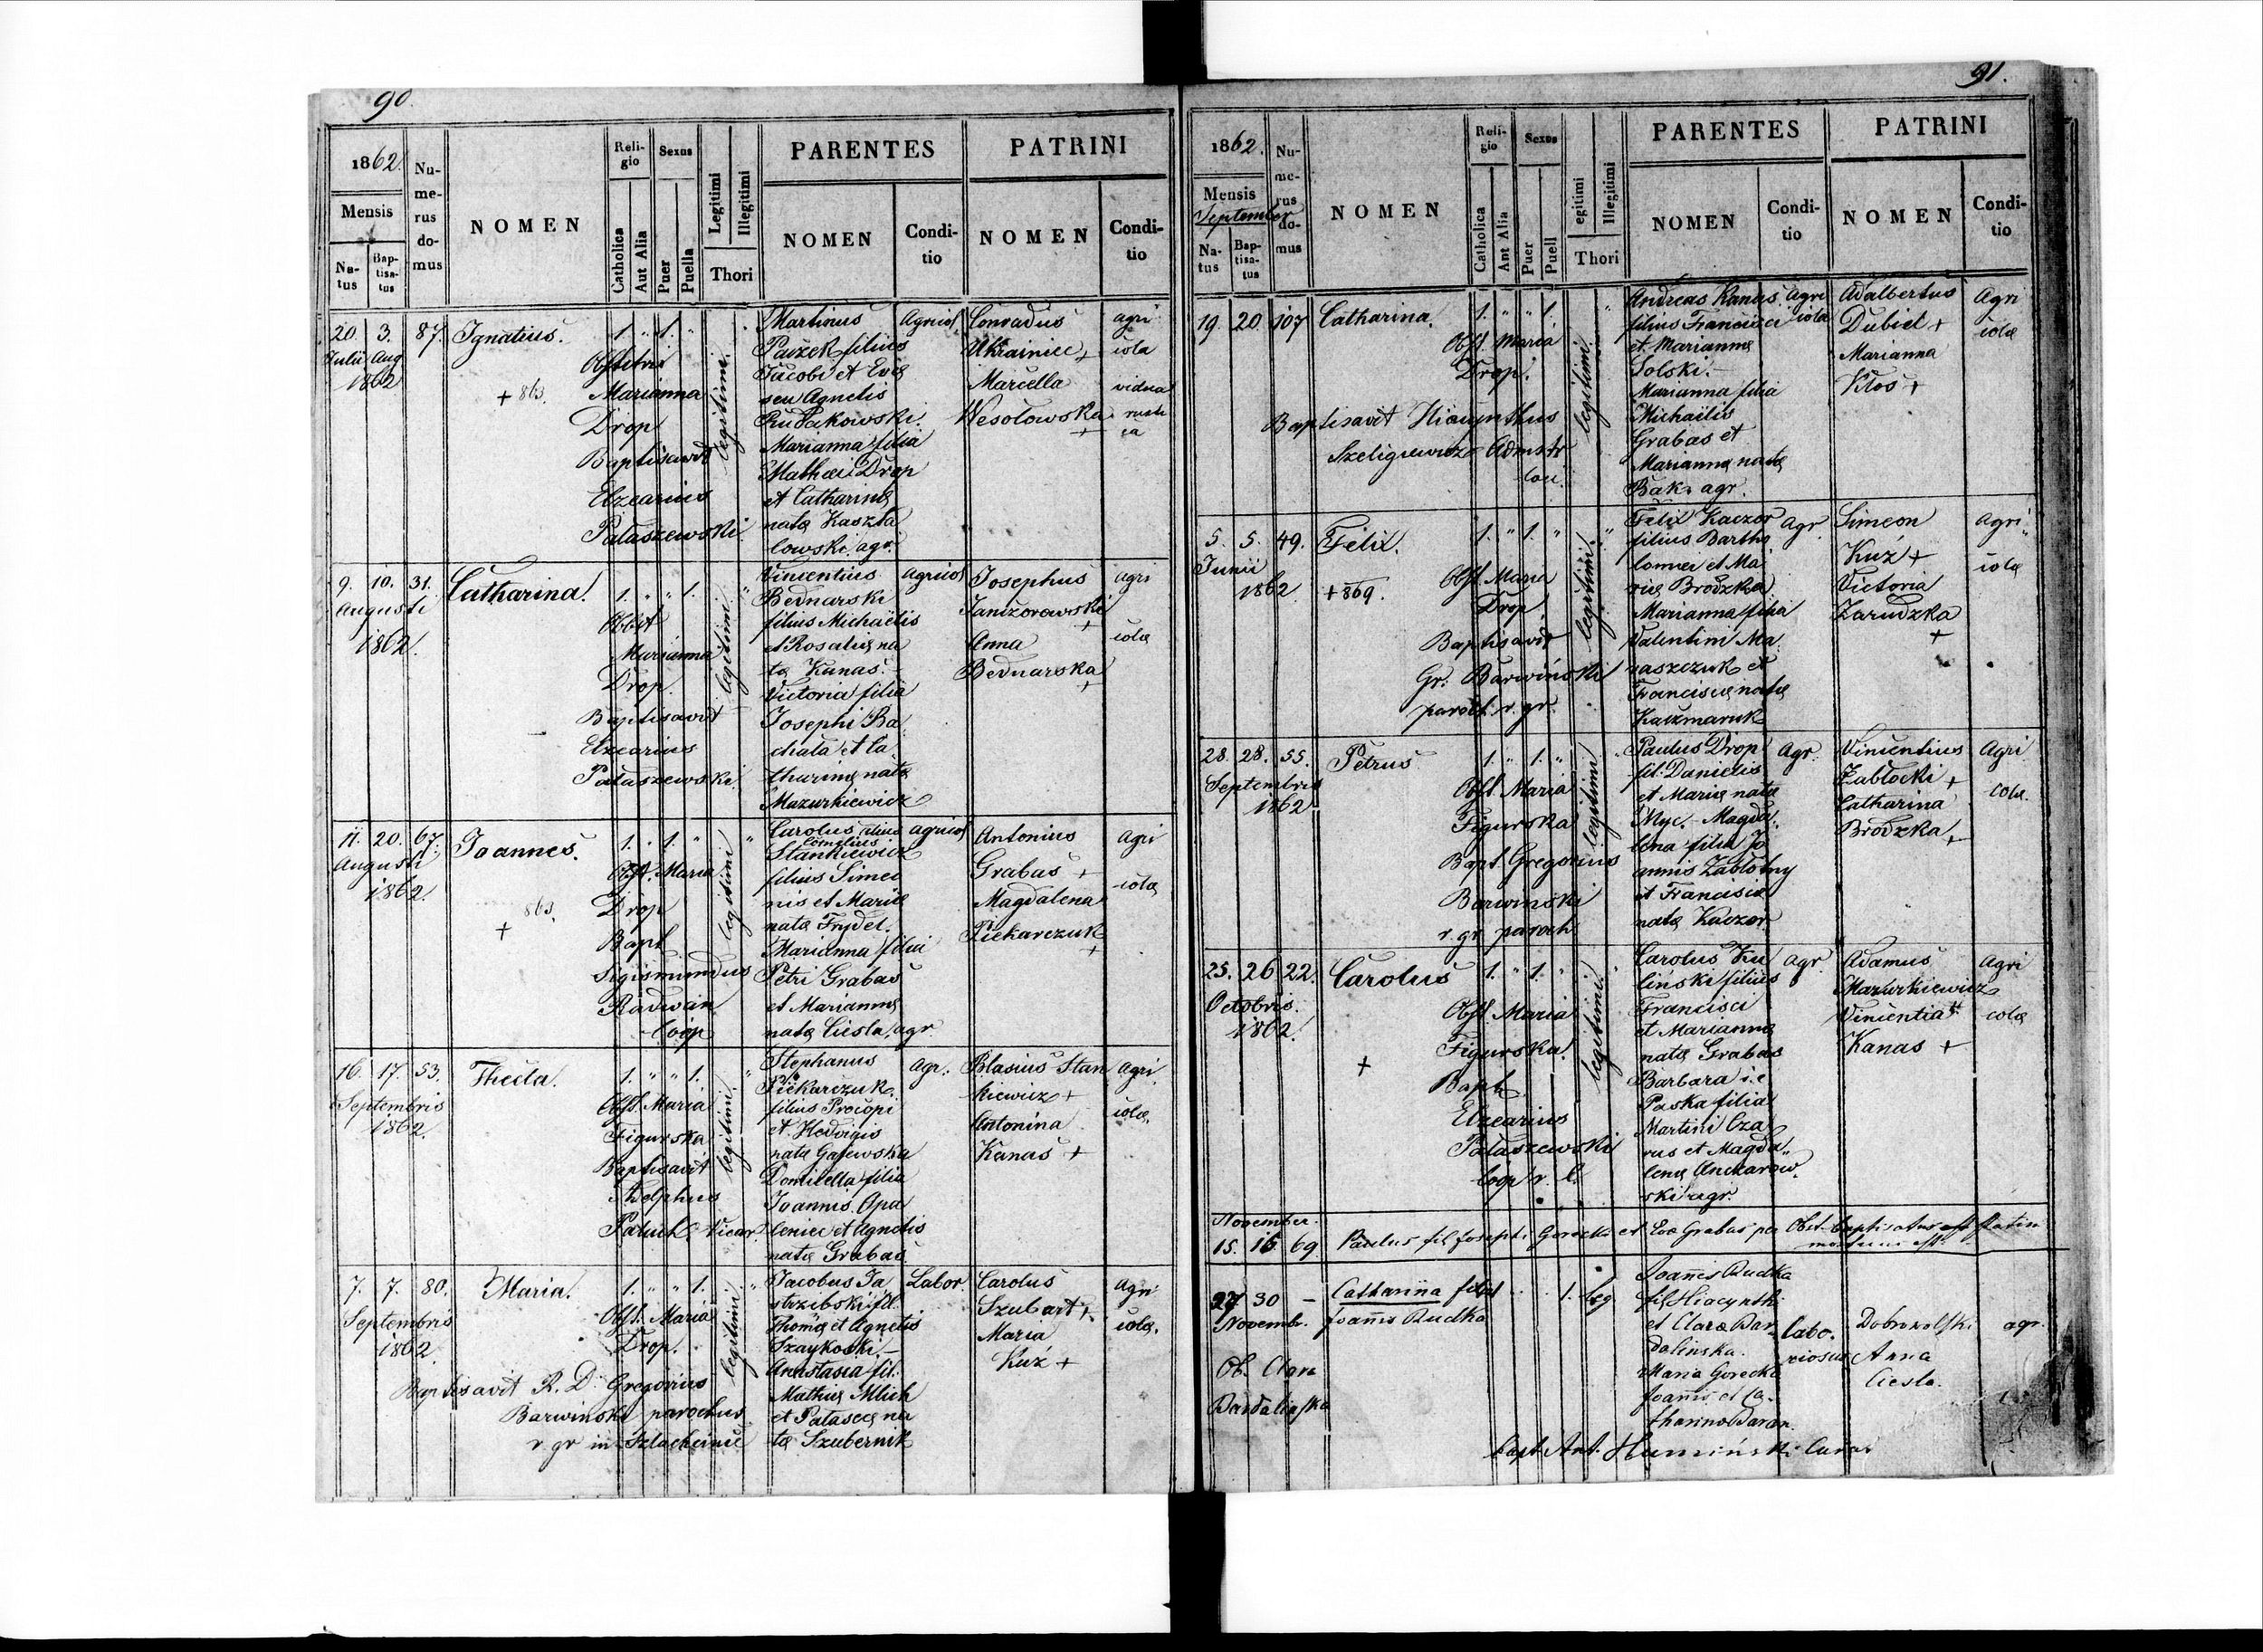 90.
1862.
Mensis
Na-
tus
Bap-
tisa-
tus
Nu-
me-
rus
do-
mus
NOMEN
Reli-
gio
Catholica
Aut Alia
Sexus
Puer
Puella
Legitimi
Illegitimi
Thori
PARENTES
NOMEN
Condi-
tio
PATRINI
NOMEN
Condi-
tio
20 3. 87. Ignatius. 1. " 1. "
Julii Aug
1862
+ 863.
Obstetrix
Marianna
Drop
Baptisavit
Elzearius
Pataszewski.
legitimi.
Martinus
Paizek filius
Jacobi et Evę
seu Agnetis
Rudakowski.
Marianna filia
Mathei Drop
et Catharinę
natę Kaszta
lowski agr.
Agricol
Conradus
Ukrainiec +
Marcella
Wesołowska
+
agri
cola
vidua
rusti
ca
9. 10. 31. Catharina. 1. " " 1. "
Augusti
1862.
Obst
Marianna
Drop.
Baptisavit
Elzearius
Pataszewski.
legitimi
Vincentius
Bednarski
filius Michaëlis
et Rosalię na
tę Kanas. -
Victoria filia
Josephi Ba
chata et Ca
tharinę natę
Mazurkiewicz
agricol
Josephus
Janizorowski
+
Anna
Bednarska
+
agri
colę
11. 20. 67. Joannes. 1. " 1. "
Augusti
1862.
863.
+
Obst. Maria
Drop
Bapt
Sigismundus
Radwan
Coop
legitimi
Carolus alias
Cornelius
Stankiewicz
filius Simeo
nis et Marię
natę Frydel.
Marianna filia
Petri Grabas
et Mariannę
natę Ciesla, agr.
agricol
Antonius
Grabas +
Magdalena
Piekarczuk
+
agri
colę
16. 17. 53. Thecla. 1. " " 1. "
Septembris
1862.
Obst. Maria
Figurska
Baptisavit
Adelphus
Patuch Vicar.
legitimi.
Stephanus
Piekarczuk
filius Procopi
et Hedvigis
natę Gajewska
Domicella filia
Joannis Opa
leniec et Agnetis
natę Grabas.
agr.
Blasius Stan
kiewicz +
Antonina
Kanas +
Agri
colę.
7. 7. 80. Maria. 1. " " 1. "
Septembris
1862.
Obst. Maria
Drop.
Baptisavit R. D. Gregorius
Barwinski parochus
r. gr. in Szlachcince
legitimi
Jacobus Ja
strzebski fil.
Thomę et Agnetis
Szaykoski. -
Anastasia fil.
Mathię Mlich
et Palasce na
tę Szubernik
Labor.
Carolus
Szubart +
Maria
Kuź +
agri
colę.
91.
1862.
Mensis
September
Na-
tus
Bap-
tisa-
tus
Nu-
me-
rus
do-
mus
NOMEN
Reli-
gio
Catholica
Ant Alia
Sexus
Puer
Puell
egitimi
Illegitimi
Thori
PARENTES
NOMEN
Condi-
tio
PATRINI
NOMEN
Condi-
tio
19. 20. 107 Catharina. 1. " " 1. "
Obst. Maria
Drop.
Baptisavit Hiacynthus
Szeligiewicz Admstr
loci.
legitimi
Andreas Kanas
filius Francisci
et Mariannę
Solski. -
Marianna filia
Michaëlis
Grabas et
Mariannę natę
Bak. agr.
Agri
cola
Adalbertus
Dubiel +
Marianna
Kłos +
Agri
colę
5. 5. 49. Felix. 1. " 1. " "
Junii
1862
+ 869.
Obst Maria
Drop
Baptisavit
Gr. Barwiński
paroch. r. gr.
legitimi
Felix Kaczor
filius Bartho
lomei et Ma
rię Brodzka
Marianna filia
Valentini Ma
naszczuk et
Franciscę natę
Kaczmaruk
agr.
Simeon
Kuź +
Victoria
Zarudzka
+
Agri
colę
28. 28. 55. Petrus 1. " 1. "
Septembris
1862
Obst Maria
Figurska
Bapt. Gregorius
Barwinski
r. gr. paroch
legitimi
Paulus Drop
fil. Danielis
et Marię natę
Myc. - Magda
lena filia Jo
annis Zabłotny
et Francisce
natę Kaczor.
Agr.
Vincentius
Zabłocki +
Catharina
Brodzka +
Agri
colę.
25. 26 22. Carolus 1. " 1. "
Octobris.
1862.
+
Obst. Maria
Figurska.
Bapt
Elzearius
Pataszewski
Coop r. l.
legitimi.
Carolus Ku
linski filius
Francisci
et Mariannę
natę Grabas
Barbara i.e.
Paska filia
Martini Cza
rus et Magda
lenę Anczarow
ski agr.
agr.
Adamus
Mazurkiewicz
Vincentia +
Kanas +
Agri
colę
November.
15. 16 69 Paulus fil Josephi Gorecki et Evę Grabas per Obst. baptisatus est statim
mortuus est.
27 30 - Catharina filia " " " 1. leg.
Novemb. Joannis Rudka
Ob. Clara
Bardalinska
Joannis Rudka
fil Hiacynthi
et Clara Bar
dalinska.
Maria Gorecka
Joannis et Ca-
tharina Baran
labo.
riosus
Dobrowolski
Anna
Ciesla.
agr.
bapt. Ant. Humiński